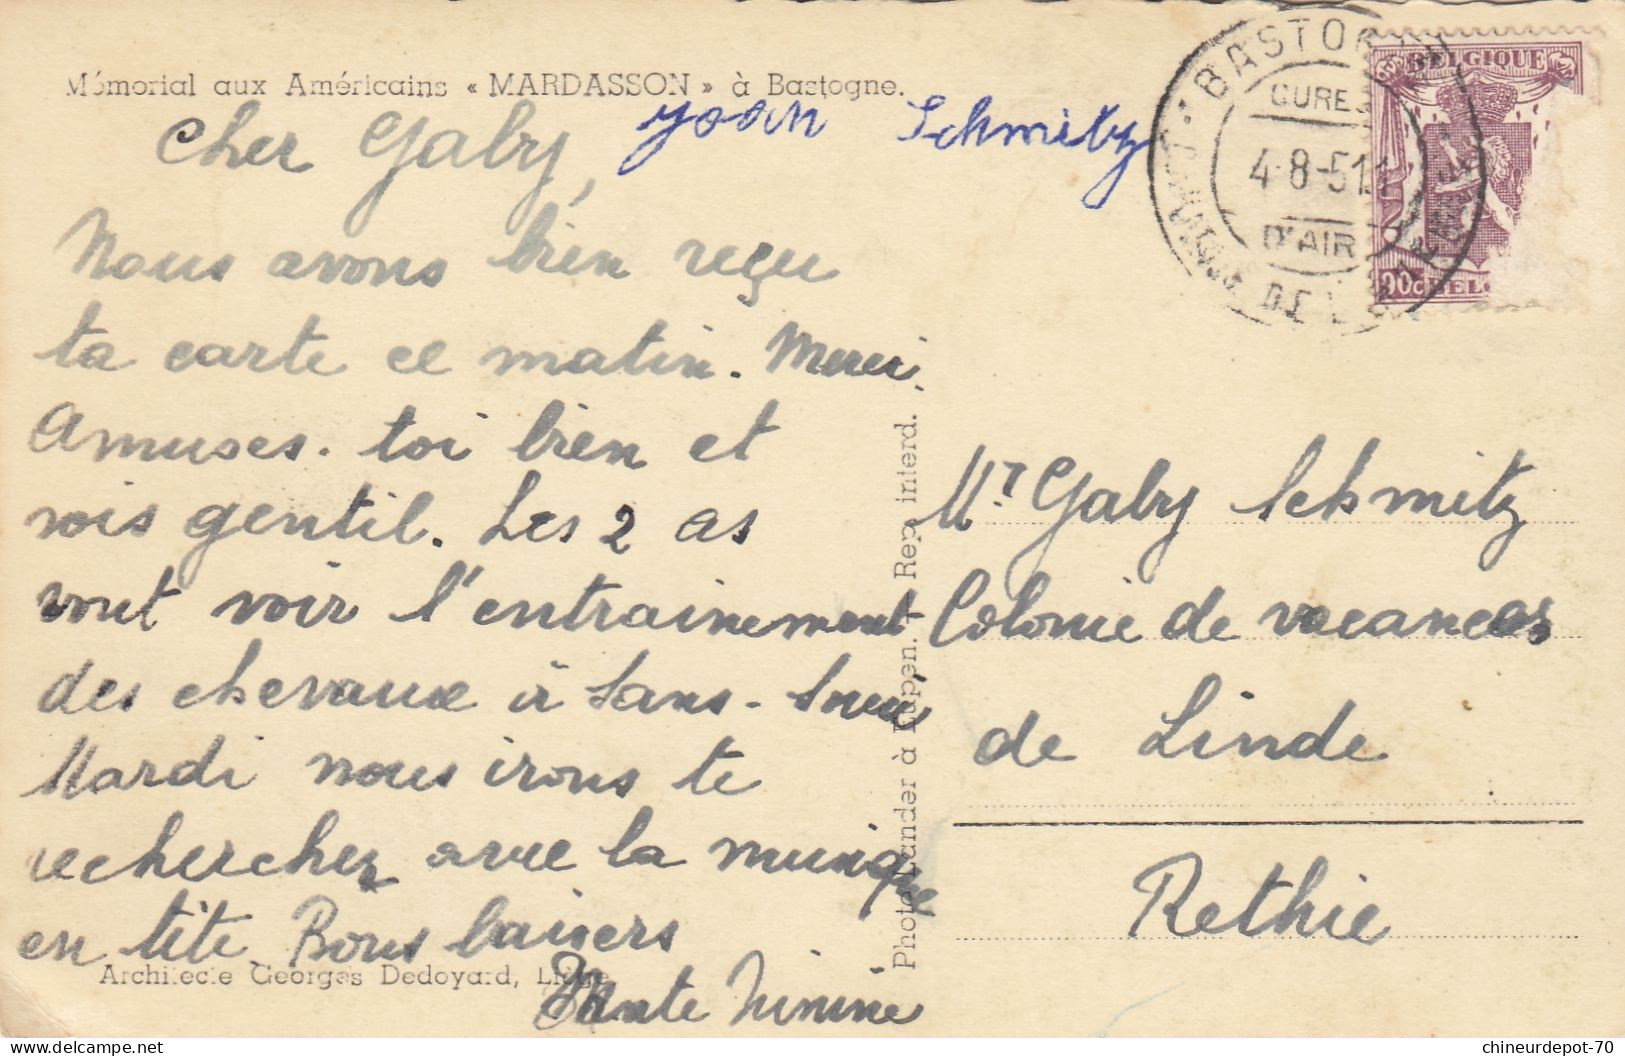 Mémorial aux Américains « MARDASSON » à Bastogne.
Cher Gaby,
Yoan Schmitz
Nous avons bien reçu
ta carte ce matin. Merci.
Amuses-toi bien et
sois gentil. Les 2 as
vont voir l'entrainement
des chevaux à Sans-Souci
Mardi nous irons te
rechercher avec la musique
en tête. Bons baisers
Tante Ninine
Architecte Georges Dedoyard, Liège
Photo Lander à Eupen. + Rep. interd.
BASTOGNE
CURES
4-8-51
D'AIR
BELGIQUE
90c BELG
Mr Gaby Schmitz
Colonie de vacances
de Linde
Rethie
chineurdepot-70